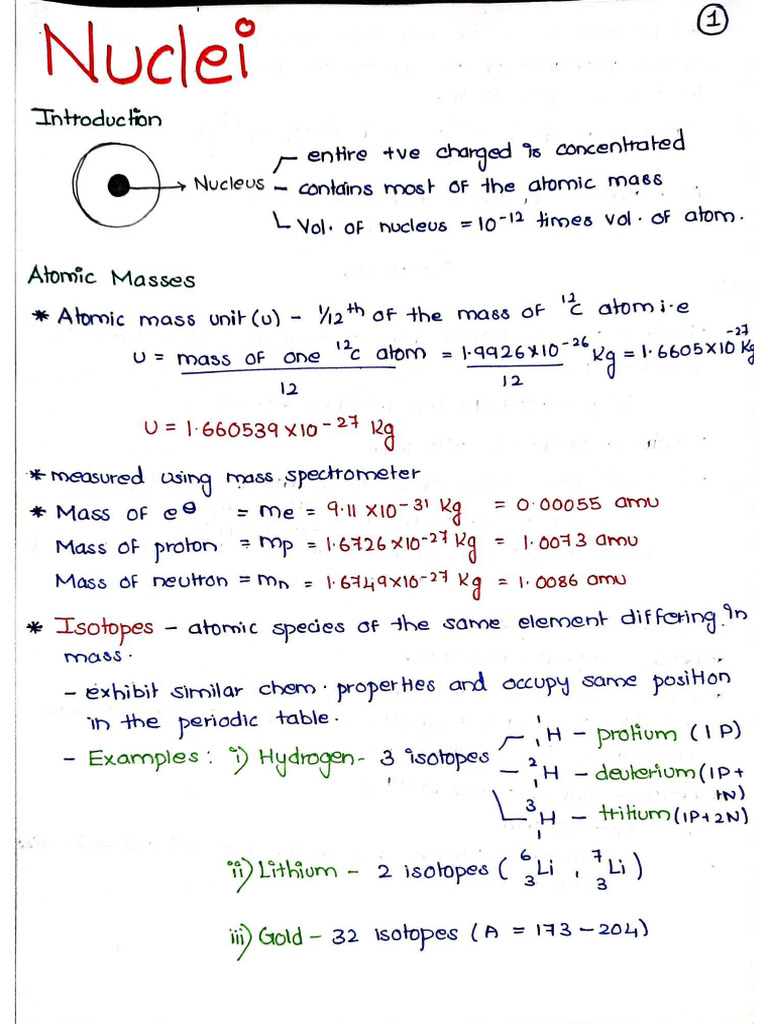 1
Nuclei
Introduction
Nucleus
entire +ve charged is concentrated
contains most of the atomic mass
Vol. of nucleus = 10⁻¹² times vol. of atom.
Atomic Masses
* Atomic mass unit (u) - 1/12th of the mass of ¹²C atom i.e
U = mass of one ¹²C atom / 12 = 1.9926×10⁻²⁶ / 12 Kg = 1.6605×10⁻²⁷ Kg
U = 1.660539×10⁻²⁷ Kg
* measured using mass spectrometer
* Mass of e⊖ = me = 9.11×10⁻³¹ Kg = 0.00055 amu
Mass of proton = mp = 1.6726×10⁻²⁷ Kg = 1.0073 amu
Mass of neutron = mn = 1.6749×10⁻²⁷ Kg = 1.0086 amu
* Isotopes - atomic species of the same element differing in
mass.
- exhibit similar chem. properties and occupy same position
in the periodic table.
- Examples: i) Hydrogen - 3 isotopes
¹₁H - protium (1P)
²₁H - deuterium (1P+
1N)
³₁H - tritium (1P+2N)
ii) Lithium - 2 isotopes (⁶₃Li , ⁷₃Li)
iii) Gold - 32 isotopes (A = 173-204)